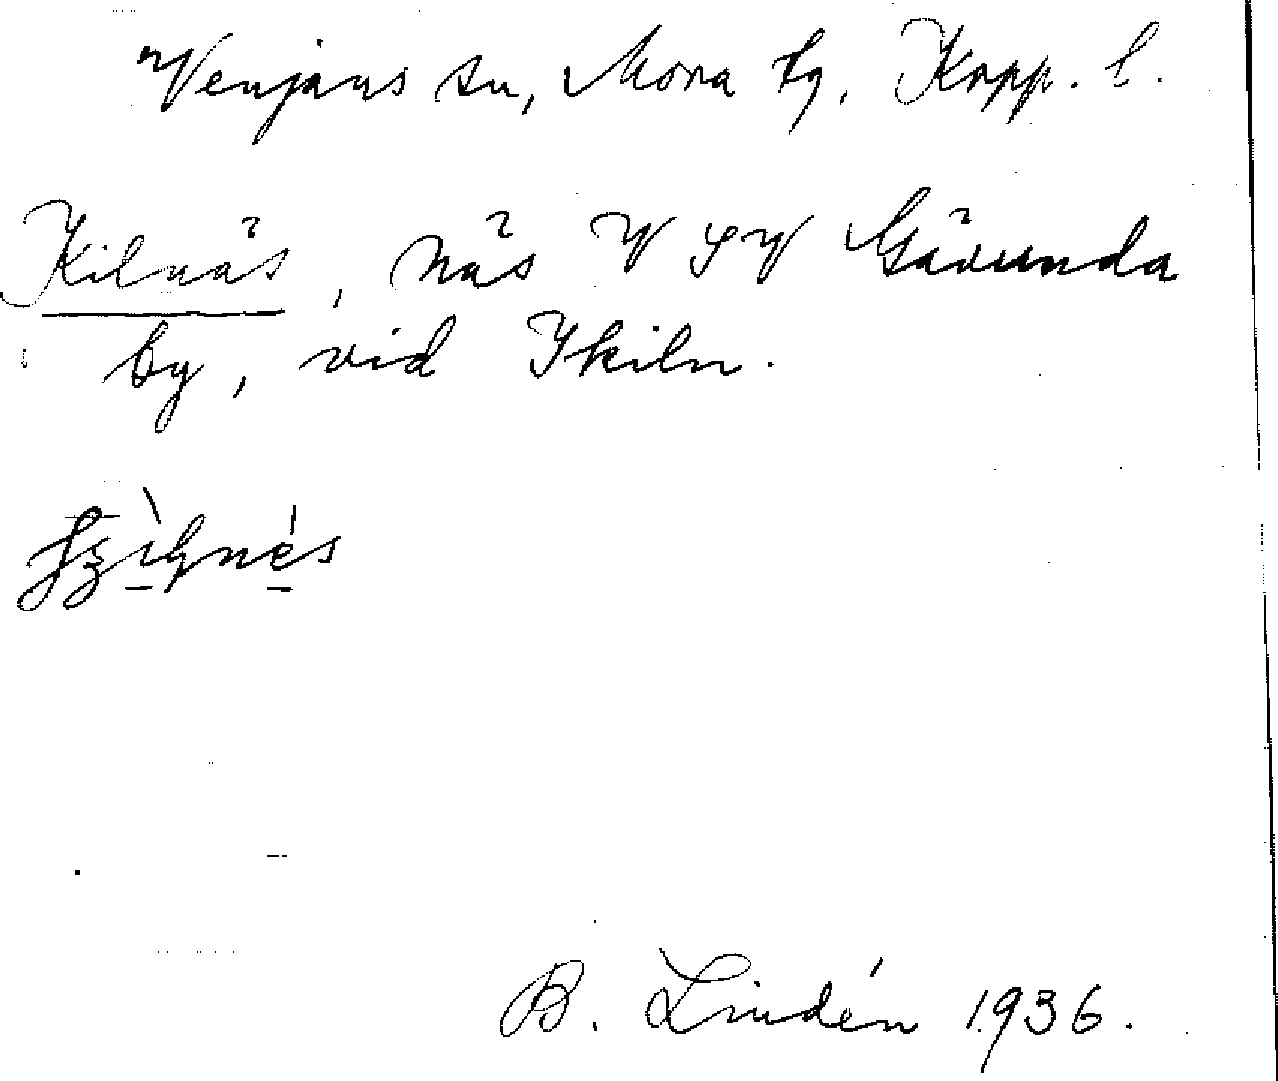 Venjans sn, Mora tg. Kopp. l.
Kilnäs, näs V SV Gävunda
by, vid Ikiln.
B. Lindén 1936.